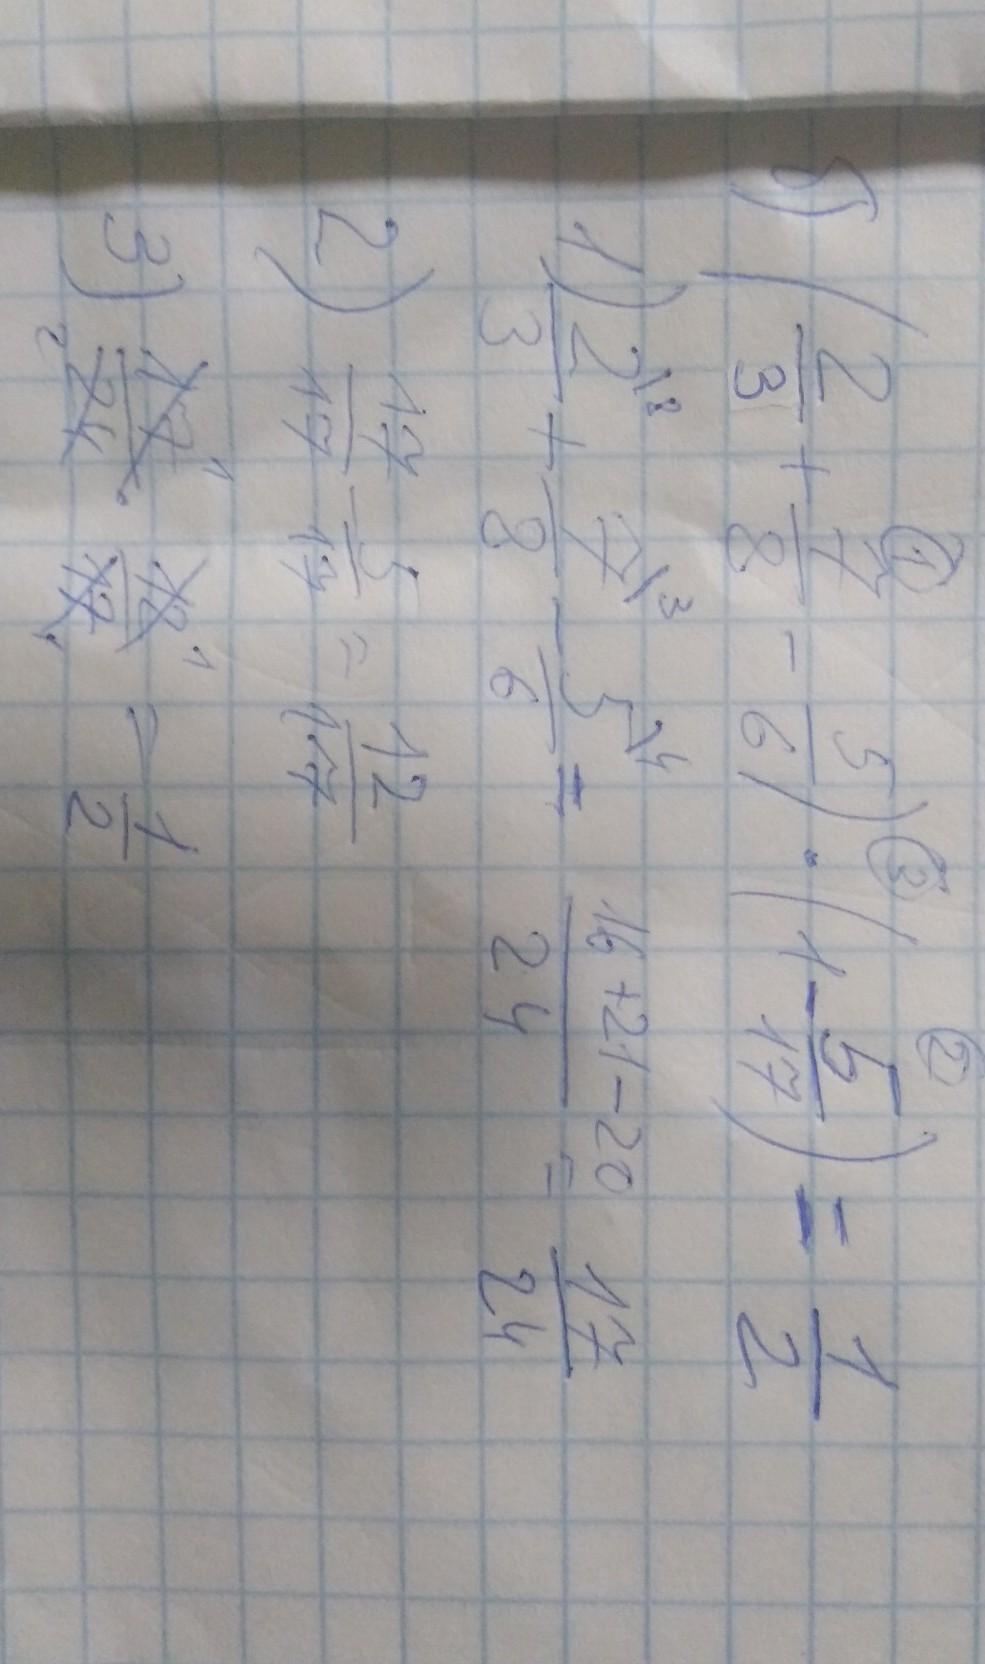 б) (2/3 + 7/8 - 5/6) · (1 - 5/17) = 1/2 ① ③ ②
1) 2/3 \8 + 7/8 \3 - 5/6 \4 = (16 + 21 - 20)/24 = 17/24
2) 17/17 - 5/17 = 12/17
3) 17/24 · 12/17 = 1/2